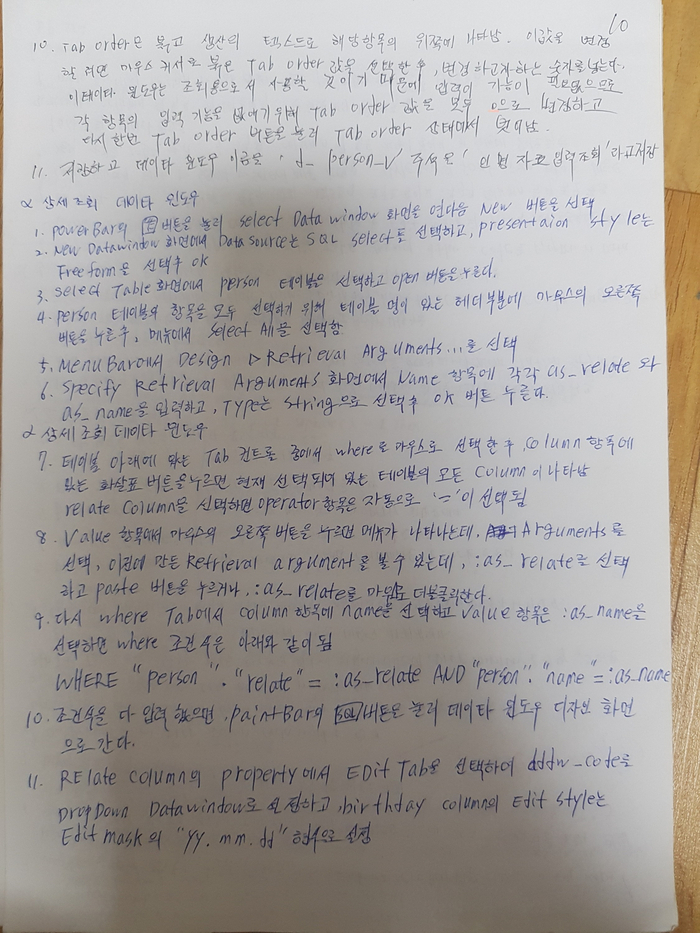 10
10. Tab order은 붉고 색산의 텍스트로 해당항목의 위쪽에 나타남. 이값을 변경
할려면 마우스 커서로 붉은 Tab order 값을 선택한 후, 변경하고자하는 숫자를 넣는다.
이데이타 윈도우는 조회용으로서 사용할 것이기 때문에 입력이 기능이 필요없으므로
각 항목의 입력 기능을 없애기위해 Tab order 값을 모두 0으로 변경하고
다시 한번 Tab order 버튼을 눌러 Tab order 상태에서 벗어남.
11. 저장하고 데이타 윈도우 이름을 'd_person_v' 주석은 '인원 자료 입력조회'라고저장
α 상세조회 데이타 윈도우
1. powerBar의 버튼을 눌러 select Data window 화면을 연다음 New 버튼을 선택
2. New Datawindow 화면에서 Data Source는 SQL select를 선택하고, presentaion style는
Freeform을 선택후 OK
3. Select Table화면에서 person 테이블을 선택하고 open 버튼을누른다.
4. person 테이블의 항목을 모두 선택하기 위해 테이블 명이 있는 헤더부분에 마우스의 오른쪽
버튼을 누른후, 메뉴에서 Select All을 선택함
5. MenuBar에서 Design ▷ Retrieval Arguments...를 선택
6. Specify Retrieval Arguments 화면에서 Name 항목에 각각 as_relate 와
as_name을 입력하고, Type는 string으로 선택후 OK 버튼 누른다.
α 상세조회 데이타 윈도우
7. 테이블 아래에 있는 Tab 컨트롤 중에서 where로 마우스로 선택한후, Column 항목에
있는 화살표 버튼을누르면 현재 선택되어 있는 테이블의 모든 Column이 나타남
relate Column을 선택하면 operator항목은 자동으로 '='이 선택됨
8. Value 항목에서 마우스의 오른쪽 버튼을 누르면 메뉴가 나타나는데, Arguments를
선택, 이전에 만든 Retrieval argument를 볼수 있는데, :as_relate를 선택
하고 paste 버튼을 누르거나, :as_relate를 더블클릭한다.
9. 다시 where Tab에서 column 항목에 name을 선택하고 Value 항목은 :as_name을
선택하면 where 조건식은 아래와 같이 됨
WHERE "person"."relate" = :as_relate AND "person"."name"=:as_name
10. 조건식을 다 입력했으면, paintBar의 SQL버튼을 눌러 데이타 윈도우 디자인 화면
으로 간다.
11. RElate column의 property에서 EDit Tab을 선택하여 dddw_code를
DropDown Datawindow로 설정하고, birthday column의 Edit style는
Edit mask의 "yy.mm.dd" 형식으로 설정